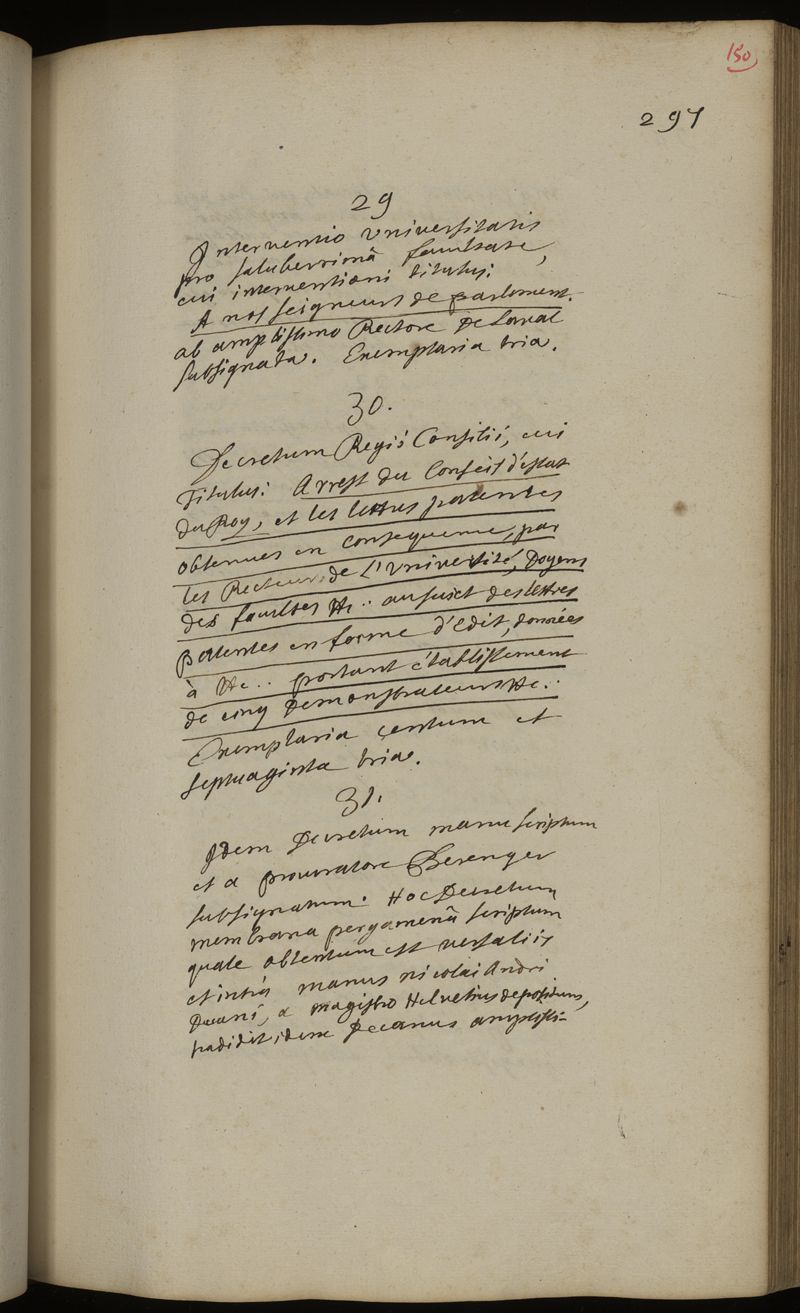 150
297
29
Interventio Universitatis
pro saluberrimâ facultate,
cui interventioni titulus:
A nos seigneurs de parlement.
ab amplissimo Rectore De Laval
subsignata. Exemplaria tria.
30.
Decretum Regii Consilii, cui
Titulus: Arrest du Conseil d'estat
du Roy, et les lettres patentes
obtenues en consequence, par
les Recteur, de L'université, Doyens
des facultes &c.. au sujet des lettres
patentes en forme d'edit, données
à &c.. portant établissement
de cinq Demonstrateurs &c..
Exemplaria centum et
septuaginta tria.
31.
Idem Decretum manu scriptum
et a procuratore Berenger
subsignatum. Hoc Decretum
membrana pergamenâ scriptum
quale obtentum est versaliis
et intrà manus nicolai Andri
Decani, a magistro Helvetius depositum,
tradidit idem Decanus amplissi-